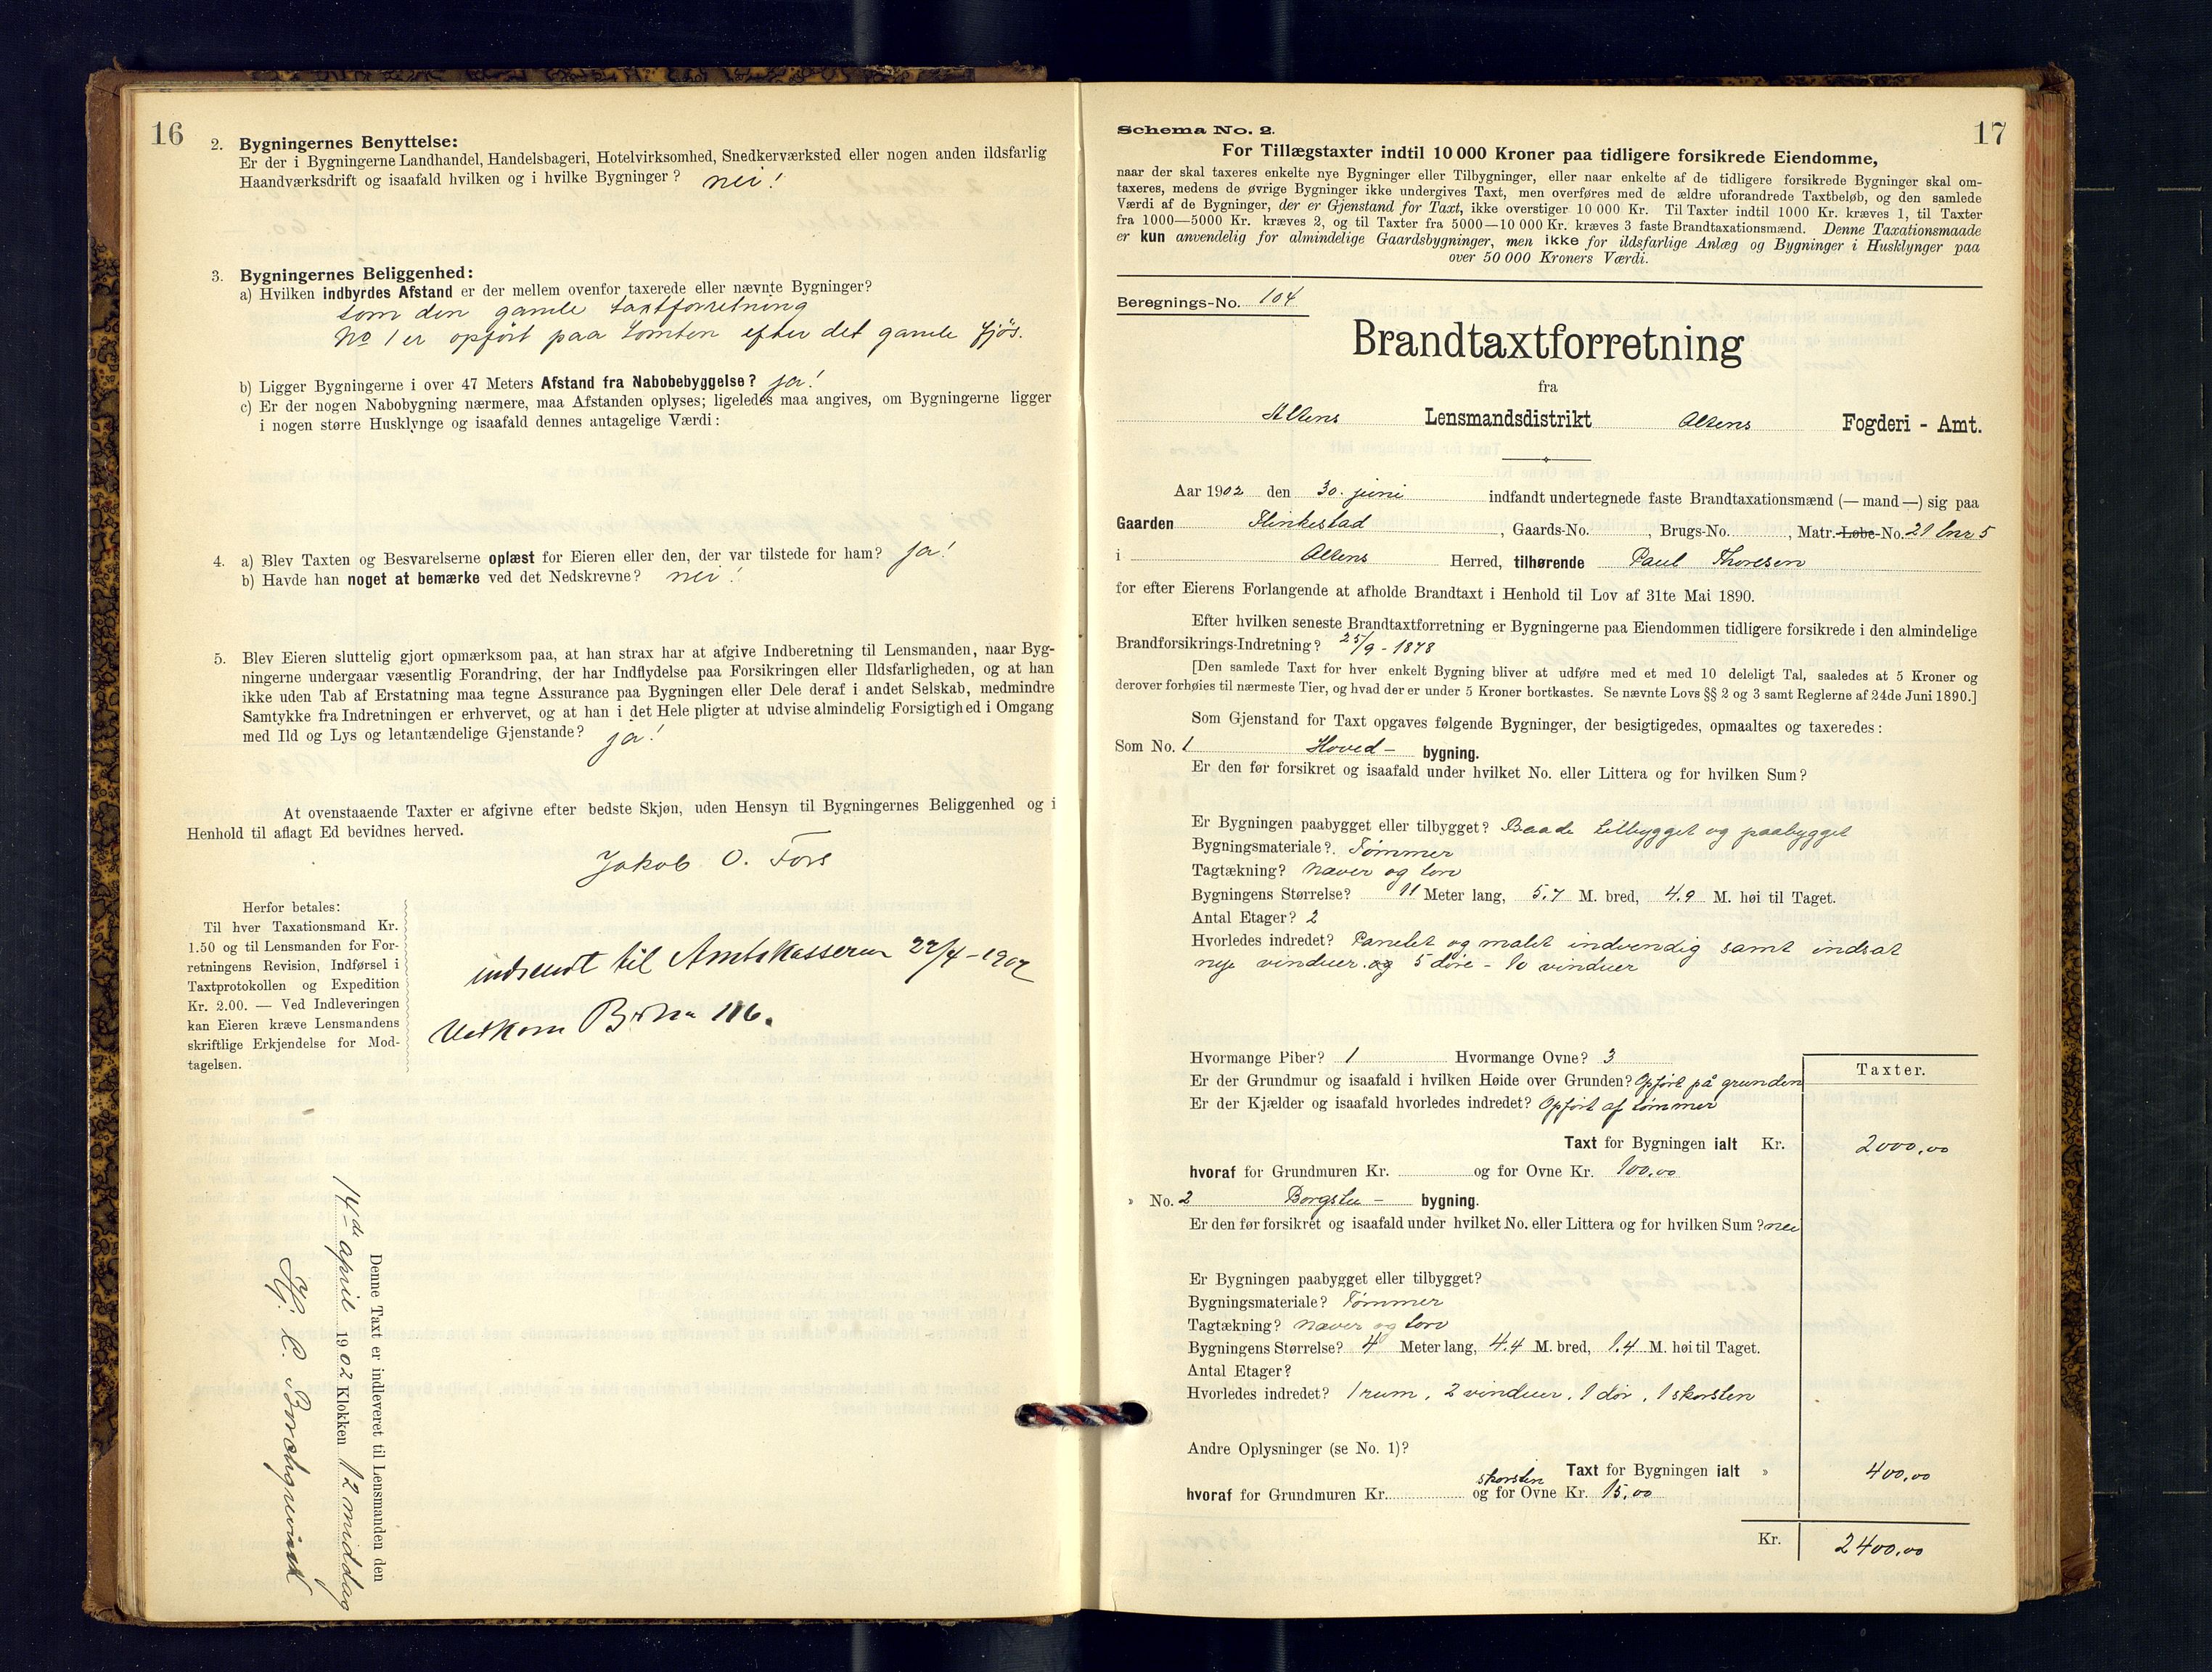 16
2. Bygningernes Benyttelse:
Er der i Bygningerne Landhandel, Handelsbageri, Hotelvirksomhed, Snedkerværksted eller nogen anden ildsfarlig
Haandværksdrift og isaafald hvilken og i hvilke Bygninger? nei!
3. Bygningernes Beliggenhed:
a) Hvilken indbyrdes Afstand er der mellem ovenfor taxerede eller nævnte Bygninger?
som den gamle taxtforretning
No 1 er opført paa Tomten efter det gamle fjøs.
b) Ligger Bygningerne i over 47 Meters Afstand fra Nabobebyggelse? ja!
c) Er der nogen Nabobygning nærmere, maa Afstanden oplyses; ligeledes maa angives, om Bygningerne ligger
i nogen større Husklynge og isaafald dennes antagelige Værdi:
4. a) Blev Taxten og Besvarelserne oplæst for Eieren eller den, der var tilstede for ham? ja!
b) Havde han noget at bemærke ved det Nedskrevne? nei!
5. Blev Eieren sluttelig gjort opmærksom paa, at han strax har at afgive Indberetning til Lensmanden, naar Byg-
ningerne undergaar væsentlig Forandring, der har Indflydelse paa Forsikringen eller Ildsfarligheden, og at han
ikke uden Tab af Erstatning maa tegne Assurance paa Bygningen eller Dele deraf i andet Selskab, medmindre
Samtykke fra Indretningen er erhvervet, og at han i det Hele pligter at udvise almindelig Forsigtighed i Omgang
med Ild og Lys og letantændelige Gjenstande? ja!
At ovenstaaende Taxter er afgivne efter bedste Skjøn, uden Hensyn til Bygningernes Beliggenhed og i
Henhold til aflagt Ed bevidnes herved.
Jakob O. Fors
Herfor betales:
Til hver Taxationsmand Kr.
1.50 og til Lensmanden for For-
retningens Revision, Indførsel i
Taxtprotokollen og Expedition
Kr. 2.00. — Ved Indleveringen
kan Eieren kræve Lensmandens
skriftlige Erkjendelse for Mod-
tagelsen.
indsendt til Amtskasseren 22/4-1902
Vedkom B.No 116.
Denne Taxt er indleveret til Lensmanden den
14de april 1902 Klokken 12 middag
Hj. C. Borchgrevink
17
Schema No. 2.
For Tillægstaxter indtil 10 000 Kroner paa tidligere forsikrede Eiendomme,
naar der skal taxeres enkelte nye Bygninger eller Tilbygninger, eller naar enkelte af de tidligere forsikrede Bygninger skal om-
taxeres, medens de øvrige Bygninger ikke undergives Taxt, men overføres med de ældre uforandrede Taxtbeløb, og den samlede
Værdi af de Bygninger, der er Gjenstand for Taxt, ikke overstiger 10 000 Kr. Til Taxter indtil 1000 Kr. kræves 1, til Taxter
fra 1000—5000 Kr. kræves 2, og til Taxter fra 5000—10 000 Kr. kræves 3 faste Brandtaxationsmænd. Denne Taxationsmaade
er kun anvendelig for almindelige Gaardsbygninger, men ikke for ildsfarlige Anlæg og Bygninger i Husklynger paa
over 50 000 Kroners Værdi.
Beregnings-No. 104
Brandtaxtforretning
fra
Altens Lensmandsdistrikt Altens Fogderi - Amt.
Aar 1902 den 30. juni indfandt undertegnede faste Brandtaxationsmænd (— mand —) sig paa
Gaarden Flinkestad, Gaards-No. , Brugs-No. , Matr. Løbe-No. 21 lnr 5
i Altens Herred, tilhørende Paul Thoresen
for efter Eierens Forlangende at afholde Brandtaxt i Henhold til Lov af 31te Mai 1890.
Efter hvilken seneste Brandtaxtforretning er Bygningerne paa Eiendommen tidligere forsikrede i den almindelige
Brandforsikrings-Indretning? 25/9 - 1878
[Den samlede Taxt for hver enkelt Bygning bliver at udføre med et med 10 deleligt Tal, saaledes at 5 Kroner og
derover forhøies til nærmeste Tier, og hvad der er under 5 Kroner bortkastes. Se nævnte Lovs §§ 2 og 3 samt Reglerne af 24de Juni 1890.]
Som Gjenstand for Taxt opgaves følgende Bygninger, der besigtigedes, opmaaltes og taxeredes:
Som No. 1 Hoved- bygning.
Er den før forsikret og isaafald under hvilket No. eller Littera og for hvilken Sum?
Er Bygningen paabygget eller tilbygget? Baade tilbygget og paabygget
Bygningsmateriale? Tømmer
Tagtækning? næver og torv
Bygningens Størrelse? 11 Meter lang, 5.7 M. bred, 4.9 M. høi til Taget.
Antal Etager? 2
Hvorledes indredet? Panelet og malet indvendig samt indsat
nye vinduer. og 5 døre - 10 vinduer
Hvormange Piber? 1 Hvormange Ovne? 3
Taxter.
Er der Grundmur og isaafald i hvilken Høide over Grunden? Opført på grunden
Er der Kjælder og isaafald hvorledes indredet? Opført af tømmer
Taxt for Bygningen ialt Kr. 2000,00
hvoraf for Grundmuren Kr. og for Ovne Kr. 100.00
» No. 2 Borgstu- bygning.
Er den før forsikret og isaafald under hvilket No. eller Littera og for hvilken Sum? nei
Er Bygningen paabygget eller tilbygget?
Bygningsmateriale? Tømmer
Tagtækning? næver og torv
Bygningens Størrelse? 4 Meter lang, 4.4 M. bred, 1.4 M. høi til Taget.
Antal Etager?
Hvorledes indredet? 1 rum, 2 vinduer, 1 dør, 1 skorsten
Andre Oplysninger (se No. 1)?
Taxt for Bygningen ialt » 400,00
skorsten
hvoraf for Grundmuren Kr. og for Ovne Kr. 15.00
Kr. 2400,00